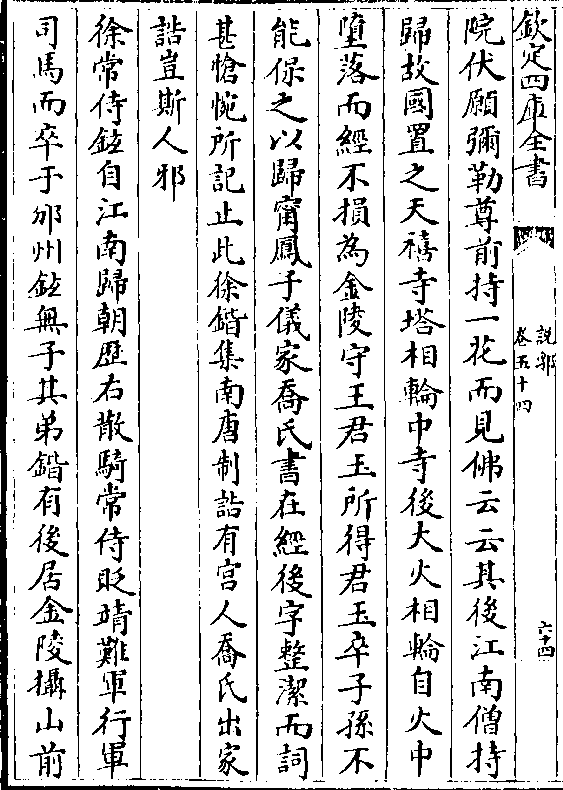 欽定四庫全書
說郛
卷五十四
六十四
院伏願彌勒尊前持一花而見佛云云其後江南僧持
歸故國置之天禧寺塔相輪中寺後大火相輪自火中
墮落而經不損為金陵守王君玉所得君玉卒子孫不
能保之以歸甯鳳子儀家喬氏書在經後字整潔而詞
甚愴惋所記止此徐鍇集南唐制誥有宫人喬氏出家
誥豈斯人邪
徐常侍鉉自江南歸朝歷右散騎常侍貶靖難軍行軍
司馬而卒于邠州鉉無子其弟鍇有後居金陵攝山前